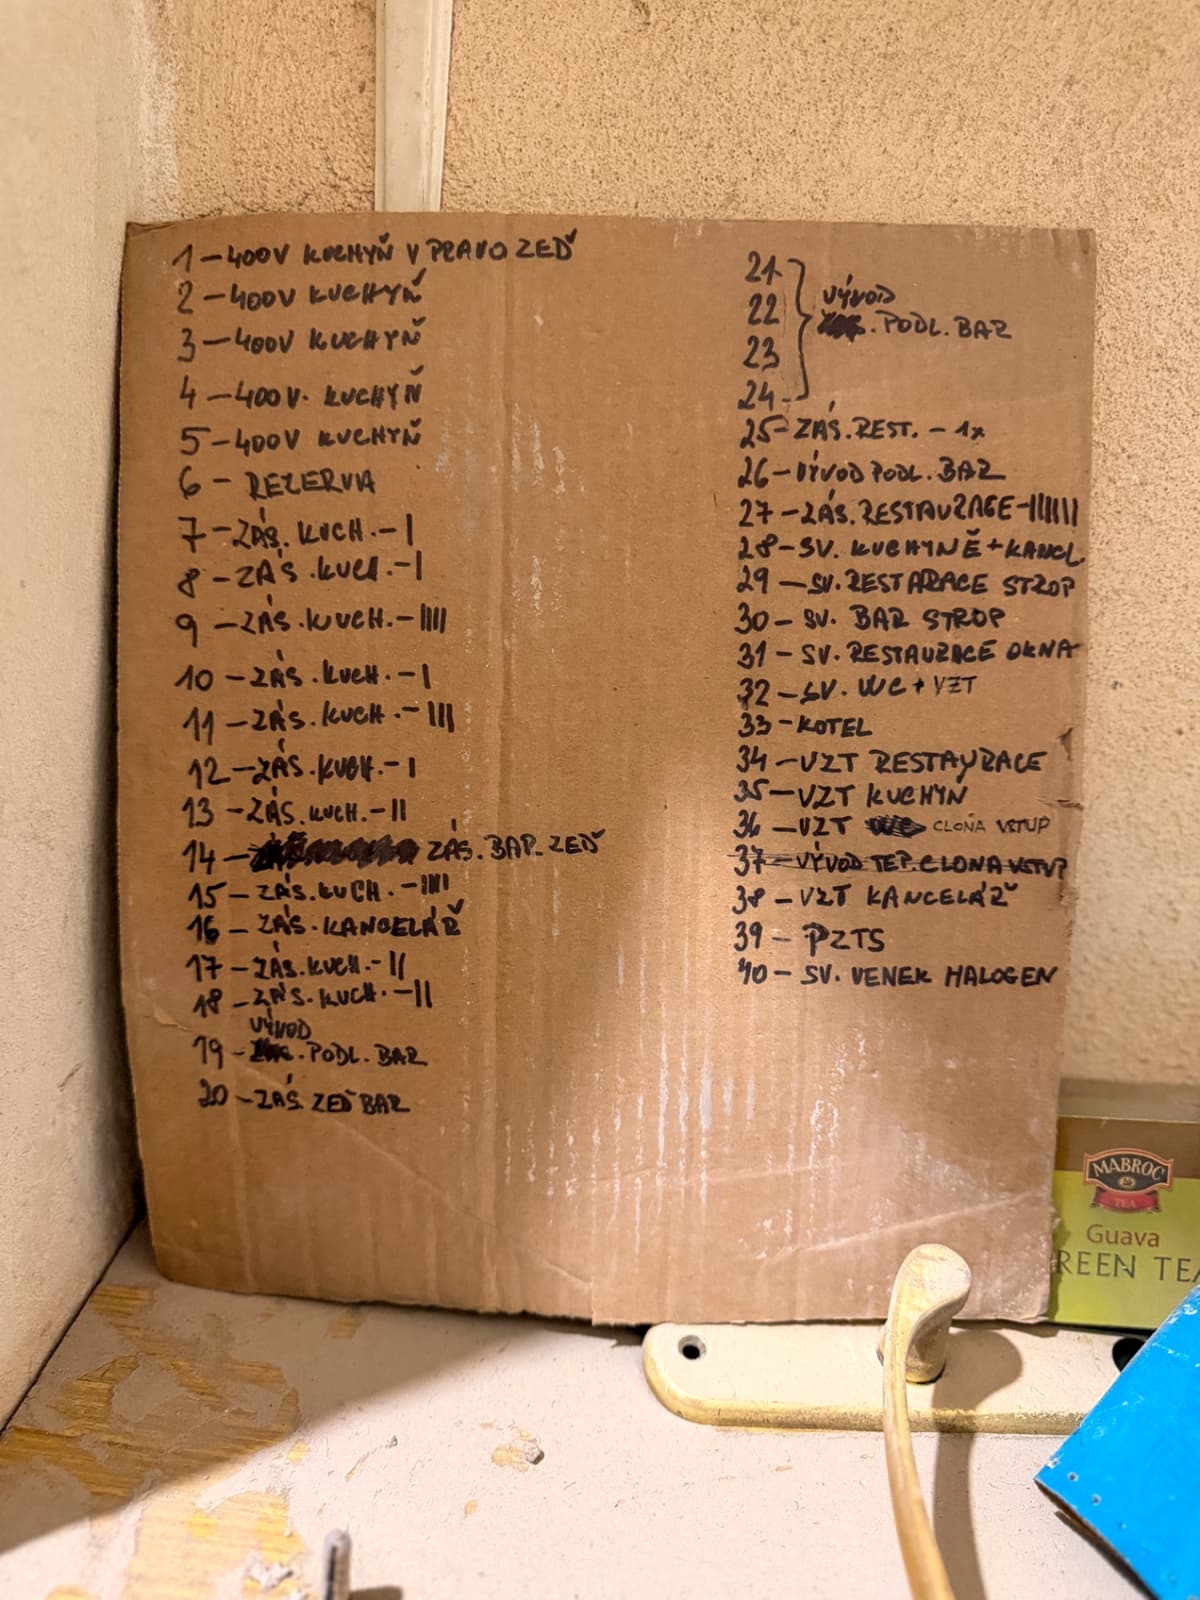 1 - 400V KUCHYŇ V PRAVO ZEĎ
2 - 400V KUCHYŇ
3 - 400V KUCHYŇ
4 - 400V. KUCHYŇ
5 - 400V KUCHYŇ
6 - REZERVA
7 - ZÁS. KUCH. - I
8 - ZÁS. KUCH. - I
9 - ZÁS. KUCH. - IIII
10 - ZÁS. KUCH. - I
11 - ZÁS. KUCH. - III
12 - ZÁS. KUCH. - I
13 - ZÁS. KUCH. - II
14 - ZÁS. BAR. ZEĎ
15 - ZÁS. KUCH. - IIII
16 - ZÁS. KANCELÁŘ
17 - ZÁS. KUCH. - II
18 - ZÁS. KUCH. - II
VÝVOD
19 - . PODL. BAR
20 - ZÁS ZEĎ BAR
21
22
23
24
VÝVOD
. PODL. BAR
25 - ZÁS. REST. - 1x
26 - VÝVOD PODL. BAR
27 - ZÁS. RESTAURACE - IIIIII
28 - SV. KUCHYNĚ + KANCL.
29 - SV. RESTARACE STROP
30 - SV. BAR STROP
31 - SV. RESTAURACE OKNA
32 - SV. WC + VZT
33 - KOTEL
34 - VZT RESTAURACE
35 - VZT KUCHYŇ
36 - VZT WC CLONA VSTUP
37 - VÝVOD TEP. CLONA VSTUP
38 - VZT KANCELÁŘ
39 - PZTS
40 - SV. VENEK HALOGEN
MABROC
TEA
Guava
REEN TEA